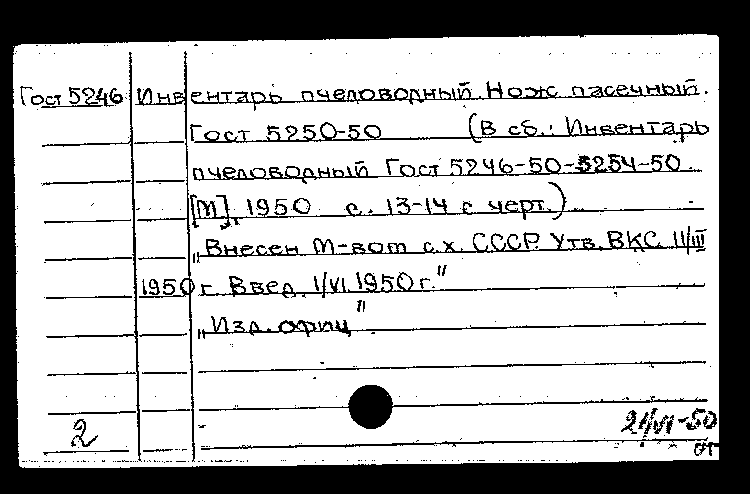 Гост 5246 Инвентарь пчеловодный. Нож пасечный.
Гост 5250-50 (В сб.: Инвентарь
пчеловодный Гост 5246-50-5254-50.
[М], 1950 с. 13-14 с черт.)
„Внесен М-вом с.х. СССР. Утв. ВКС 11/III
1950 г. Введ. 1/VI 1950 г."
„Изд. офиц"
2
21/VI-50